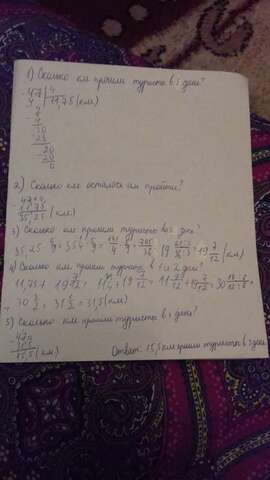 1) Сколько км прошли туристы в 1 день?
- 47 | 4
4 | 11,75 (км)
7
4
30
28
20
20
0
2) Сколько км осталось им пройти?
- 47,00
11,75
35,25 (км)
3) Сколько км прошли туристы во 2 день?
35,25 · 5/9 = 35 1/4 · 5/9 = 141/4 · 5/9 = 705/36 = 19 = 19 7/12 (км)
4) Сколько км прошли туристы в 1 и 2 день?
11,75 + 19 7/12 = 11 + 19 7/12 = 11 + 19 7/12 = 30
= 31 = (км)
5) Сколько км прошли туристы в день?
- 47
15,5 (км)
Ответ: 15,5 км прошли туристы в 3 день